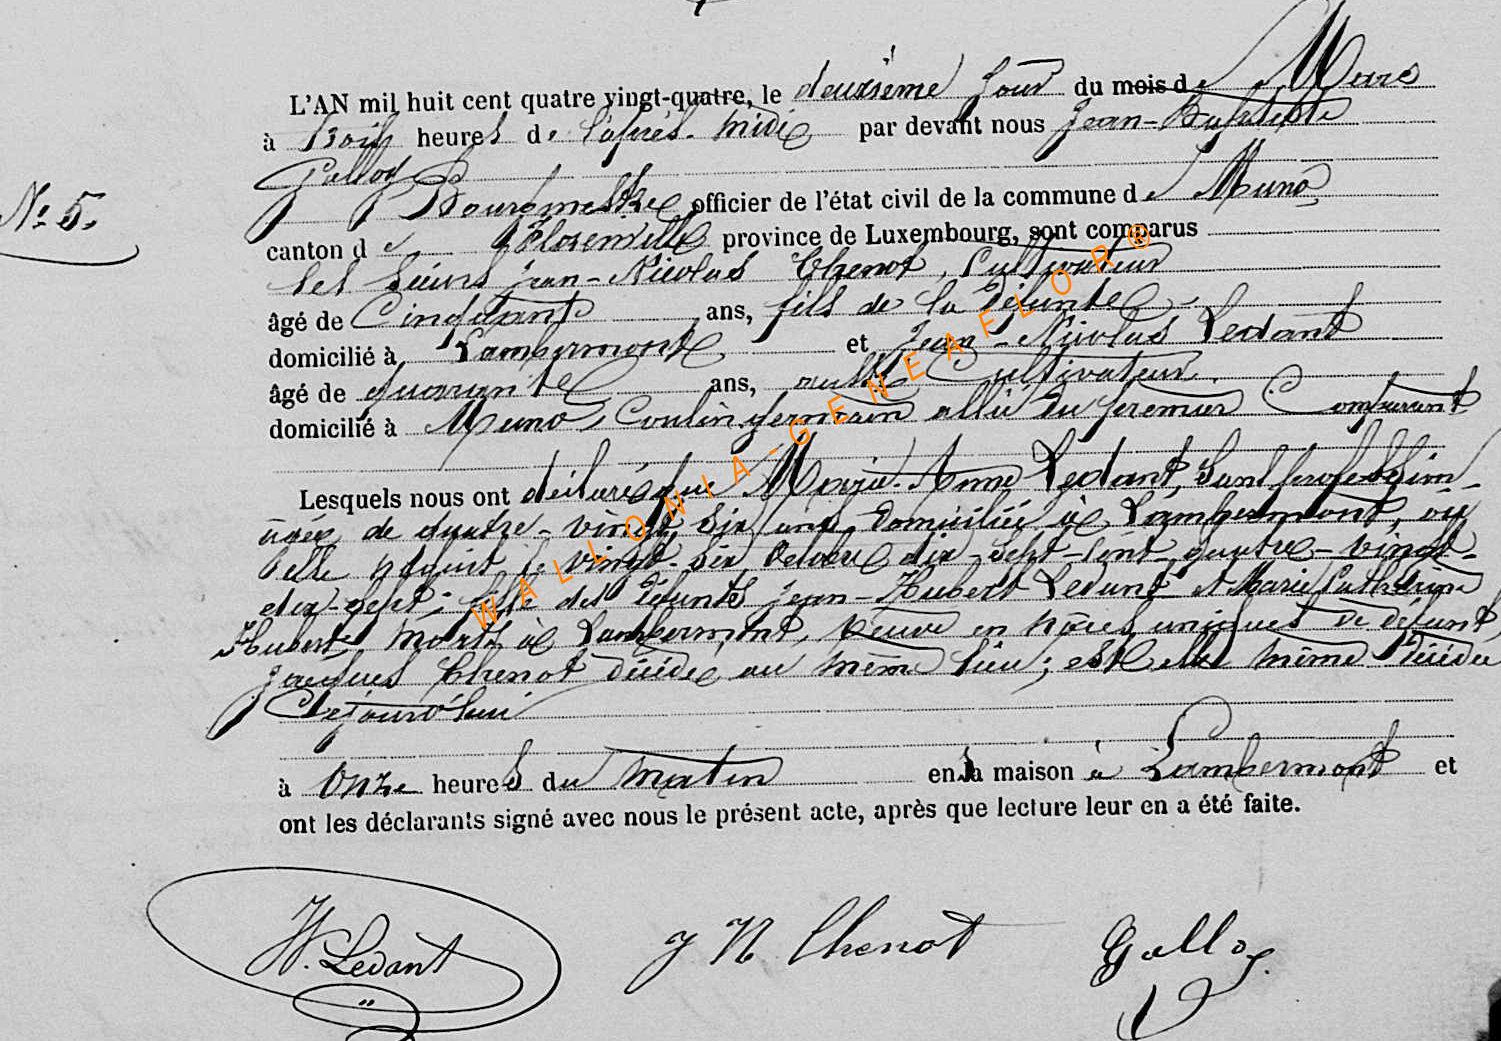 L'AN mil huit cent quatre vingt-quatre, le deuxième jour du mois de Mars
à trois heures de l'après-midi par devant nous Jean-Baptiste
Bourgmestre, officier de l'état civil de la commune de Muno
N° 5.
canton de Florenville province de Luxembourg, sont comparus
les sieurs Jean-Nicolas Thenot, Cultivateur
âgé de Cinquante ans, fils de la défunte
domicilié à Lambermont et Jean-Nicolas Ledant
âgé de quarante ans, aussi Cultivateur
domicilié à Muno, Cousin germain allié du premier Comparant
Lesquels nous ont déclaré que Marie-Anne Ledant, sans profession,
âgée de quatre-vingt six ans, domiciliée à Lambermont, où
elle naquit le vingt-six dix-sept-cent quatre-vingt-
dix-sept; fille des défunts Jean-Hubert Ledant et Marie Catherine
Hubert, morts à Lambermont, Veuve en noces uniques de défunt
Jacques Thenot décédé au même lieu; est elle même décédée
Cejourd'hui
à Onze heures du matin en sa maison à Lambermont et
ont les déclarants signé avec nous le présent acte, après que lecture leur en a été faite.
WALLONIA-GENEAFLOR®
N. Ledant
J N Thenot